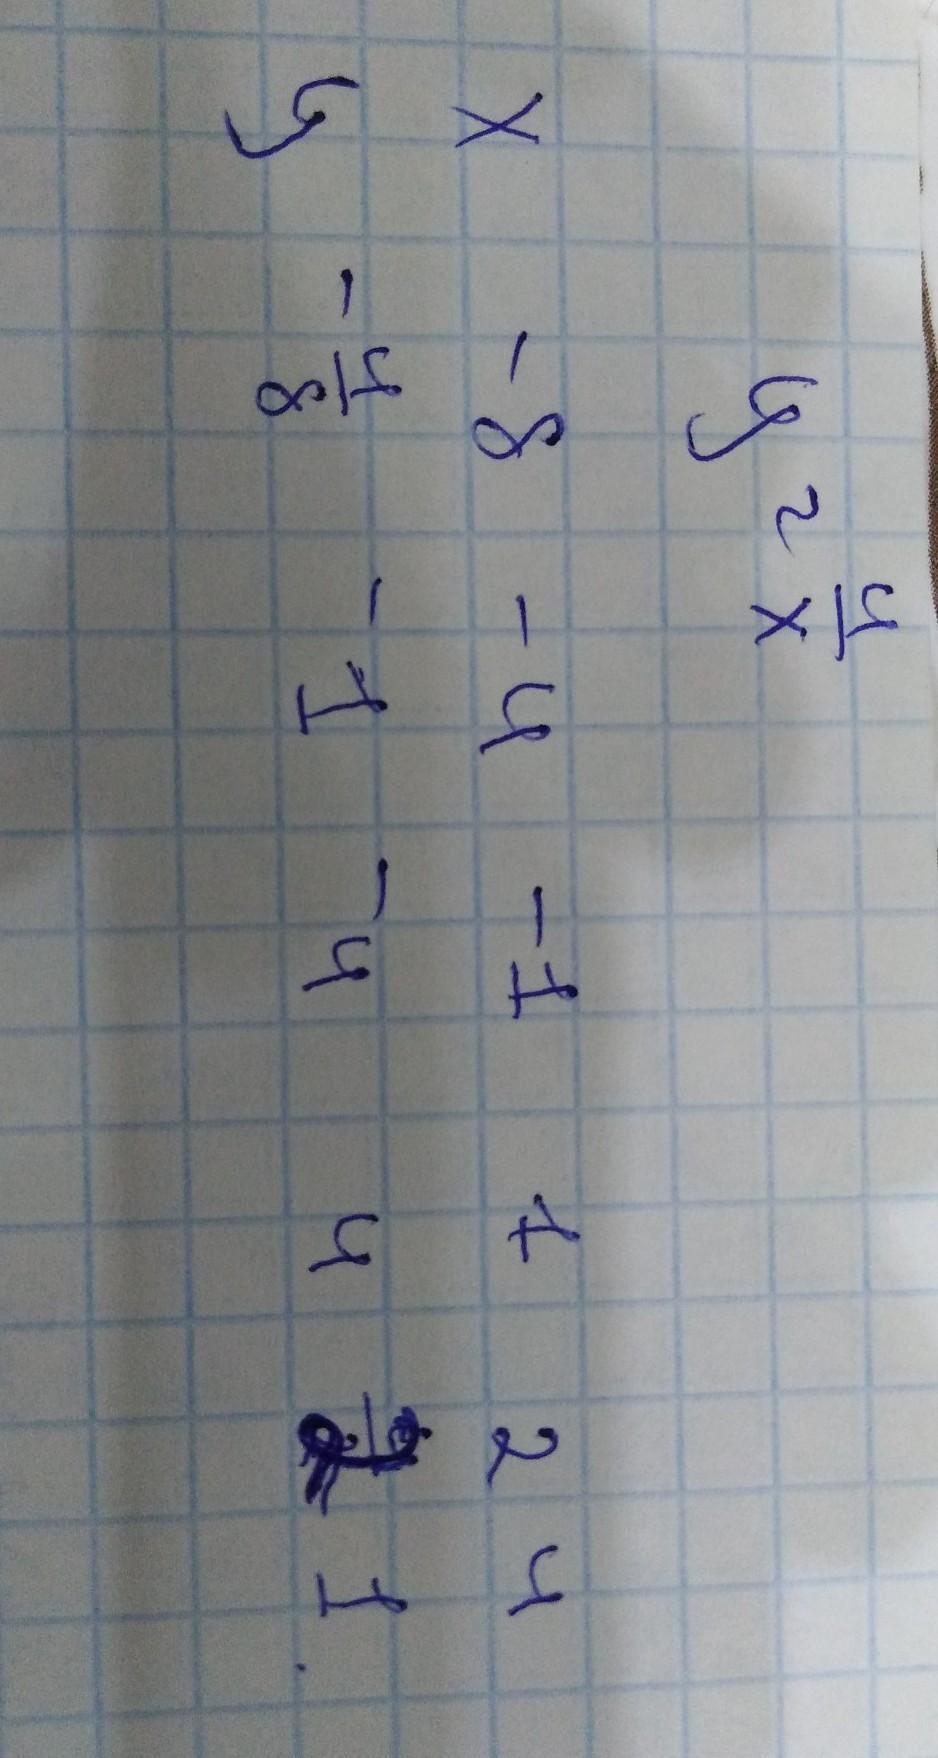 y = 4/x
x -8 -4 -1 1 2 4
y -4/8 -1 -4 4 1